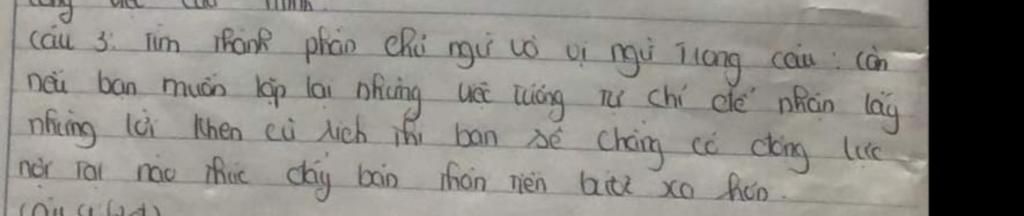 của mình.
câu 3: Tìm thành phần chủ ngữ và vị ngữ trong câu: Còn
nếu bạn muốn lặp lại những việc tương tự chỉ để nhận lấy
những lời khen cũ rích thì bạn sẽ chẳng có động lực
nội tại nào thúc đẩy bản thân tiến bước xa hơn.